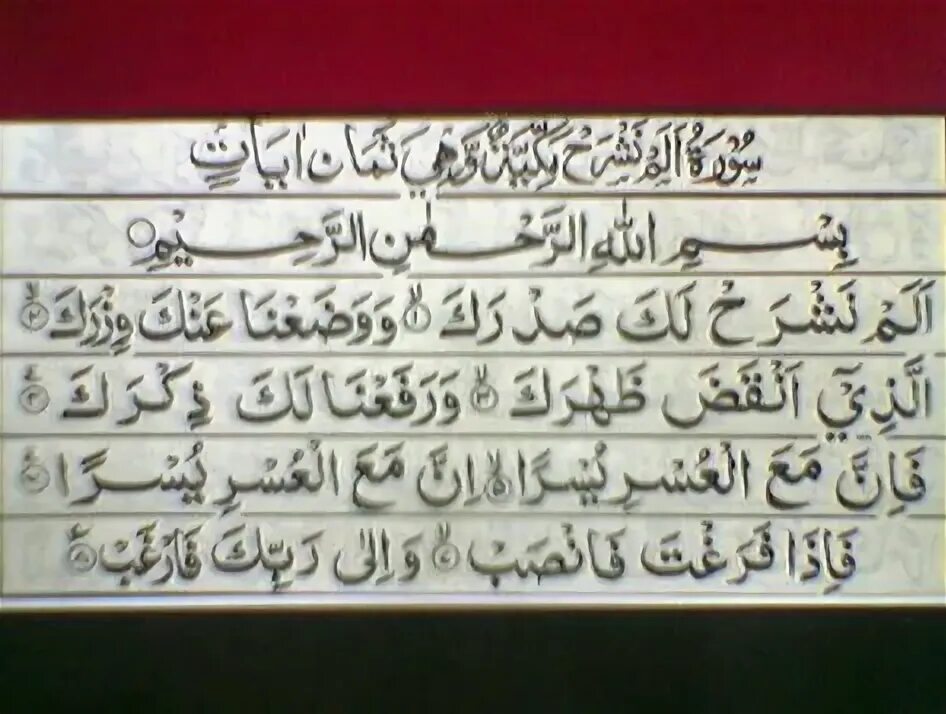 سُوْرَةُ اَلَمْ نَشْرَحْ مَكِّيَّةٌ وَّهِيَ ثَمَانُ اٰيَاتٍ
بِسْمِ اللّٰهِ الرَّحْمٰنِ الرَّحِيْمِ ○
اَلَمْ نَشْرَحْ لَكَ صَدْرَكَ ۙ﴿۱﴾ وَوَضَعْنَا عَنْكَ وِزْرَكَ ۙ﴿۲﴾
الَّذِيْٓ اَنْقَضَ ظَهْرَكَ ۙ﴿۳﴾ وَرَفَعْنَا لَكَ ذِكْرَكَ ؕ﴿۴﴾
فَاِنَّ مَعَ الْعُسْرِ يُسْرًا ۙ﴿۵﴾ اِنَّ مَعَ الْعُسْرِ يُسْرًا ؕ﴿۶﴾
فَاِذَا فَرَغْتَ فَانْصَبْ ۙ﴿۷﴾ وَاِلٰى رَبِّكَ فَارْغَبْ ؕ﴿۸﴾